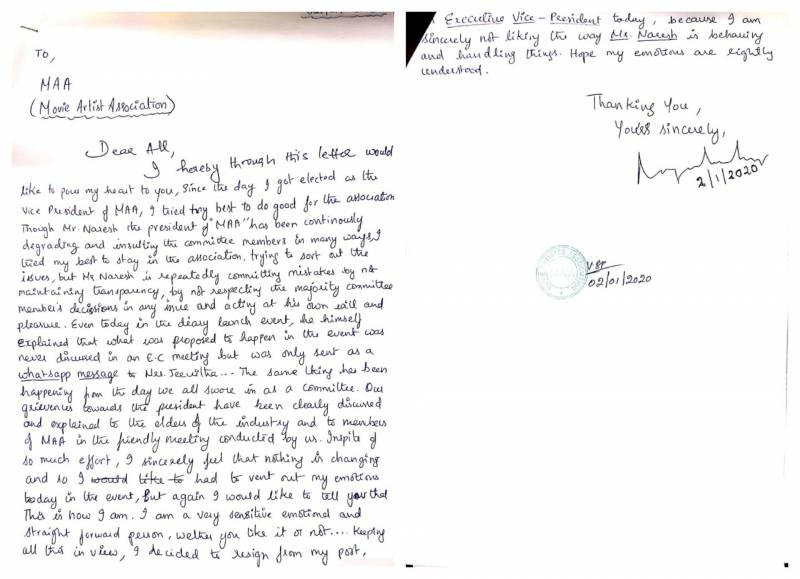 To,
MAA
(Movie Artist Association)
Dear All,
I hereby through this letter would
like to pour my heart to you, Since the day I got elected as the
Vice President of MAA, I tried my best to do good for the association
Though Mr. Naresh the president of "MAA" has been continously
degrading and insulting the committee members in many ways, I
tried my best to stay in the association. trying to sort out the
issues, but Mr Naresh is repeatedly committing mistakes by not
maintaining transparency, by not respecting the majority committee
member's decisions in any issue and acting at his own will and
pleasure. Even today in the diary launch event, he himself
explained that what was proposed to happen in the event was
never discussed in an E.C meeting but was only sent as a
whatsapp message to Mrs. Jeevitha... The same thing has been
happening from the day we all swore in as a committee. Our
grievences towards the president have been clearly discussed
and explained to the elders of the industry and to members
of MAA in the friendly meeting conducted by us. Inspite of
so much effort, I sincerely feel that nothing is changing
and so I would like to had to vent out my emotions
today in the event, But again I would like to tell you that
This is how I am. I am a very sensitive emotional and
straight forward person, wether you like it or not.... Keeping
all this in view, I decided to resign from my post,
Executive Vice - President today, because I am
sincerely not liking the way Mr. Naresh is behaving
and handling things. Hope my emotions are rightly
understood.
Thanking You,
Yours sincerely,
2/1/2020
02/01/2020